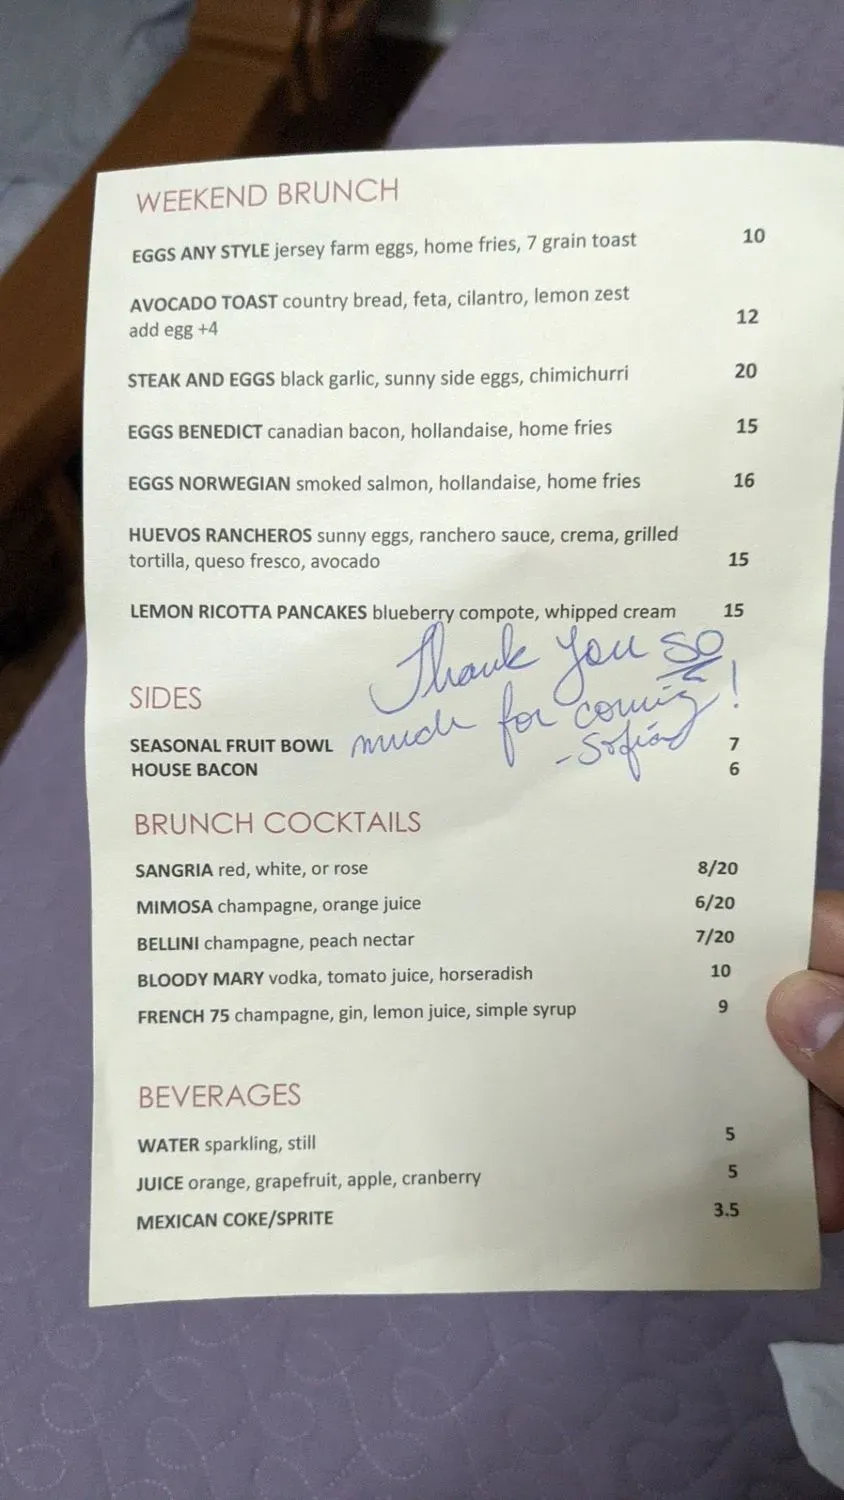 WEEKEND BRUNCH
EGGS ANY STYLE jersey farm eggs, home fries, 7 grain toast 10
AVOCADO TOAST country bread, feta, cilantro, lemon zest
add egg +4 12
STEAK AND EGGS black garlic, sunny side eggs, chimichurri 20
EGGS BENEDICT canadian bacon, hollandaise, home fries 15
EGGS NORWEGIAN smoked salmon, hollandaise, home fries 16
HUEVOS RANCHEROS sunny eggs, ranchero sauce, crema, grilled
tortilla, queso fresco, avocado 15
LEMON RICOTTA PANCAKES blueberry compote, whipped cream 15
Thank you so
much for coming!
-Sofia
SIDES
SEASONAL FRUIT BOWL 7
HOUSE BACON 6
BRUNCH COCKTAILS
SANGRIA red, white, or rose 8/20
MIMOSA champagne, orange juice 6/20
BELLINI champagne, peach nectar 7/20
BLOODY MARY vodka, tomato juice, horseradish 10
FRENCH 75 champagne, gin, lemon juice, simple syrup 9
BEVERAGES
WATER sparkling, still 5
JUICE orange, grapefruit, apple, cranberry 5
MEXICAN COKE/SPRITE 3.5